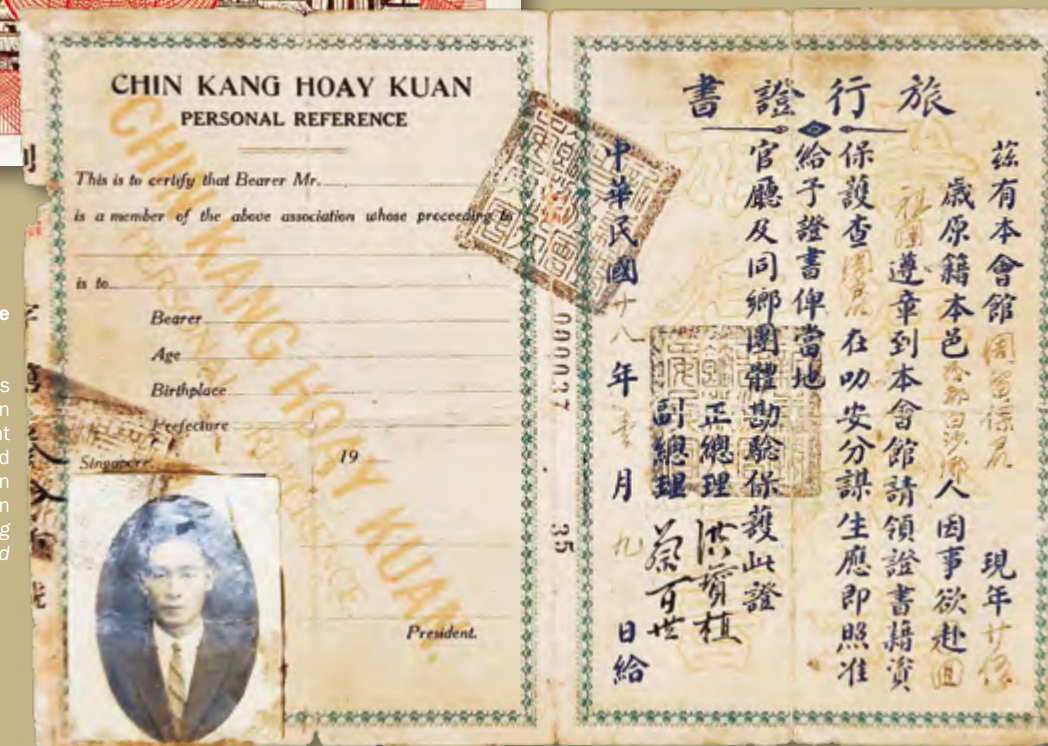 CHIN KANG HOAY KUAN
PERSONAL REFERENCE
This is to certify that Bearer Mr.
is a member of the above association whose proceeding to
is to
Bearer
Age
Birthplace
Prefecture
Singapore, 19
President.
CHIN KANG HOAY KUAN.
PERSONAL REFERENCE
000037
35
旅行證書
茲有本會館周留保君現年廿 係
歲原籍本邑 白沙鄉人因事欲赴回
祖國遵章到本會館請領證書藉資
保護查周君在叻安分謀生應即照准
給予證書俾當地
官廳及同鄉團體勘驗保護此證
正總理 洪寶植
副總理 蔡百世
中華民國廿八年 月九日給
e
s
n
nt
d
n
n
g
d